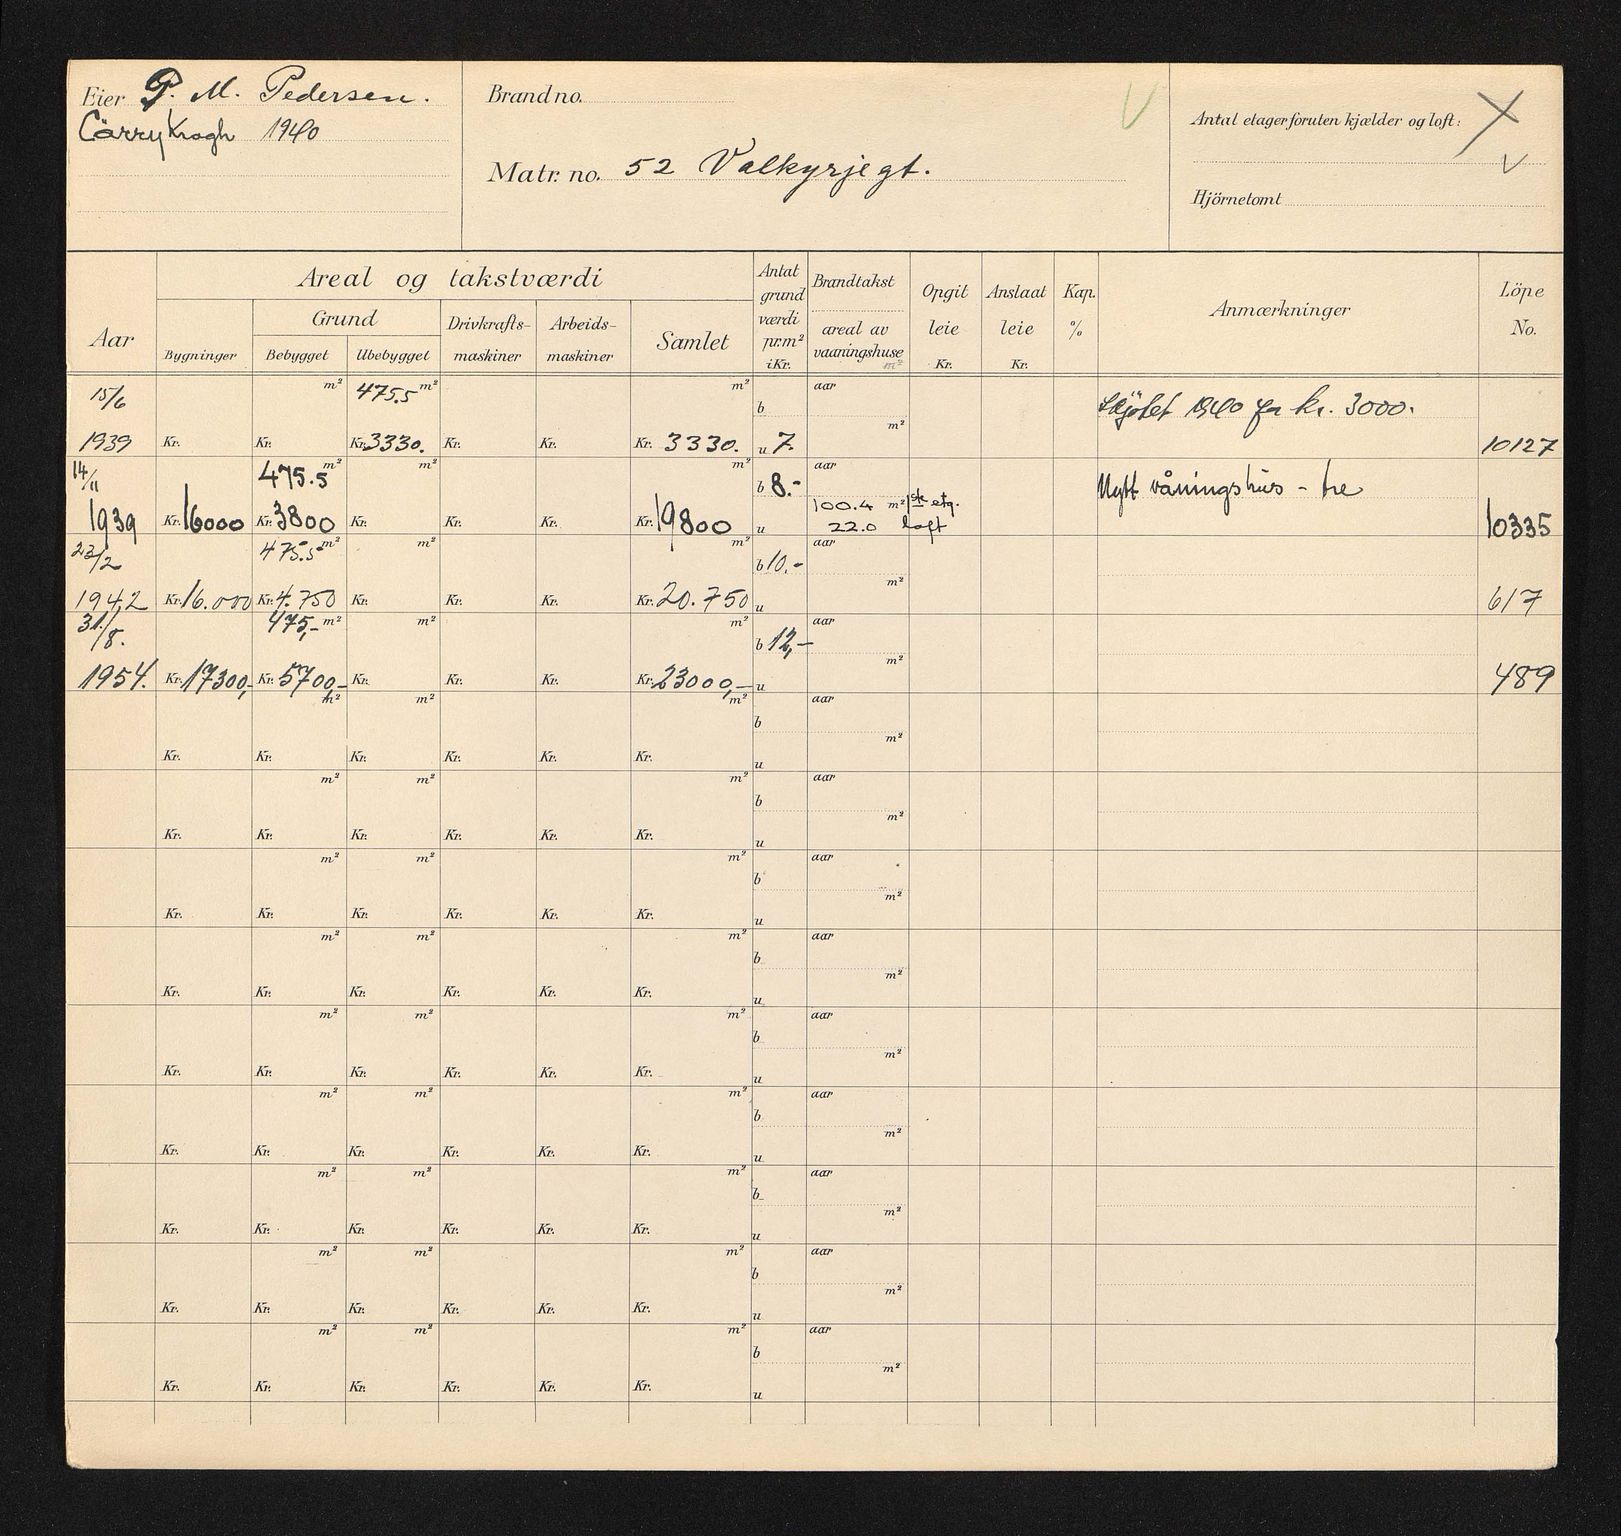 Eier P. M. Pedersen.
Cärry Krogh 1940
Brand no.
Matr. no. 52 Valkyrjegt.
Antal etager foruten kjælder og loft:
Hjörnetomt
Aar
Areal og takstværdi
Bygninger
Grund
Bebygget
Ubebygget
Drivkrafts-
maskiner
Arbeids-
maskiner
Samlet
Antat
grund
værdi
pr.m²
i Kr.
Brandtakst
areal av
vaaningshuse
m²
Opgit
leie
Kr.
Anslaat
leie
Kr.
Kap.
%
Anmærkninger
Löpe
No.
15/6 m² 475.5 m² m² aar
b
m²
Skjøtet 1940 for kr. 3000.
1939 Kr. Kr. Kr. 3330. Kr. Kr. Kr. 3330. u 7. 10127
14/11 475.5 m² m² m² b 8.- aar
Nytt våningshus - tre
100.4 m² 1ste etg.
1939 Kr. 16000 Kr. 3800 Kr. Kr. Kr. Kr. 19800 u 22.0 loft 10335
23/2 475.5 m² m² m² b 10.- aar
m²
1942 Kr. 16.000 Kr. 4.750 Kr. Kr. Kr. Kr. 20.750 u 617
31/8. 475,- m² m² m² b 12,- aar
m²
1954. Kr. 17300,- Kr. 5700,- Kr. Kr. Kr. Kr. 23000,- u 489
m² m² m² aar
b
m²
Kr. Kr. Kr. Kr. Kr. Kr. u
m² m² m² aar
b
m²
Kr. Kr. Kr. Kr. Kr. Kr. u
m² m² m² aar
b
m²
Kr. Kr. Kr. Kr. Kr. Kr. u
m² m² m² aar
b
m²
Kr. Kr. Kr. Kr. Kr. Kr. u
m² m² m² aar
b
m²
Kr. Kr. Kr. Kr. Kr. Kr. u
m² m² m² aar
b
m²
Kr. Kr. Kr. Kr. Kr. Kr. u
m² m² m² aar
b
m²
Kr. Kr. Kr. Kr. Kr. Kr. u
m² m² m² aar
b
m²
Kr. Kr. Kr. Kr. Kr. Kr. u
m² m² m² aar
b
m²
Kr. Kr. Kr. Kr. Kr. Kr. u